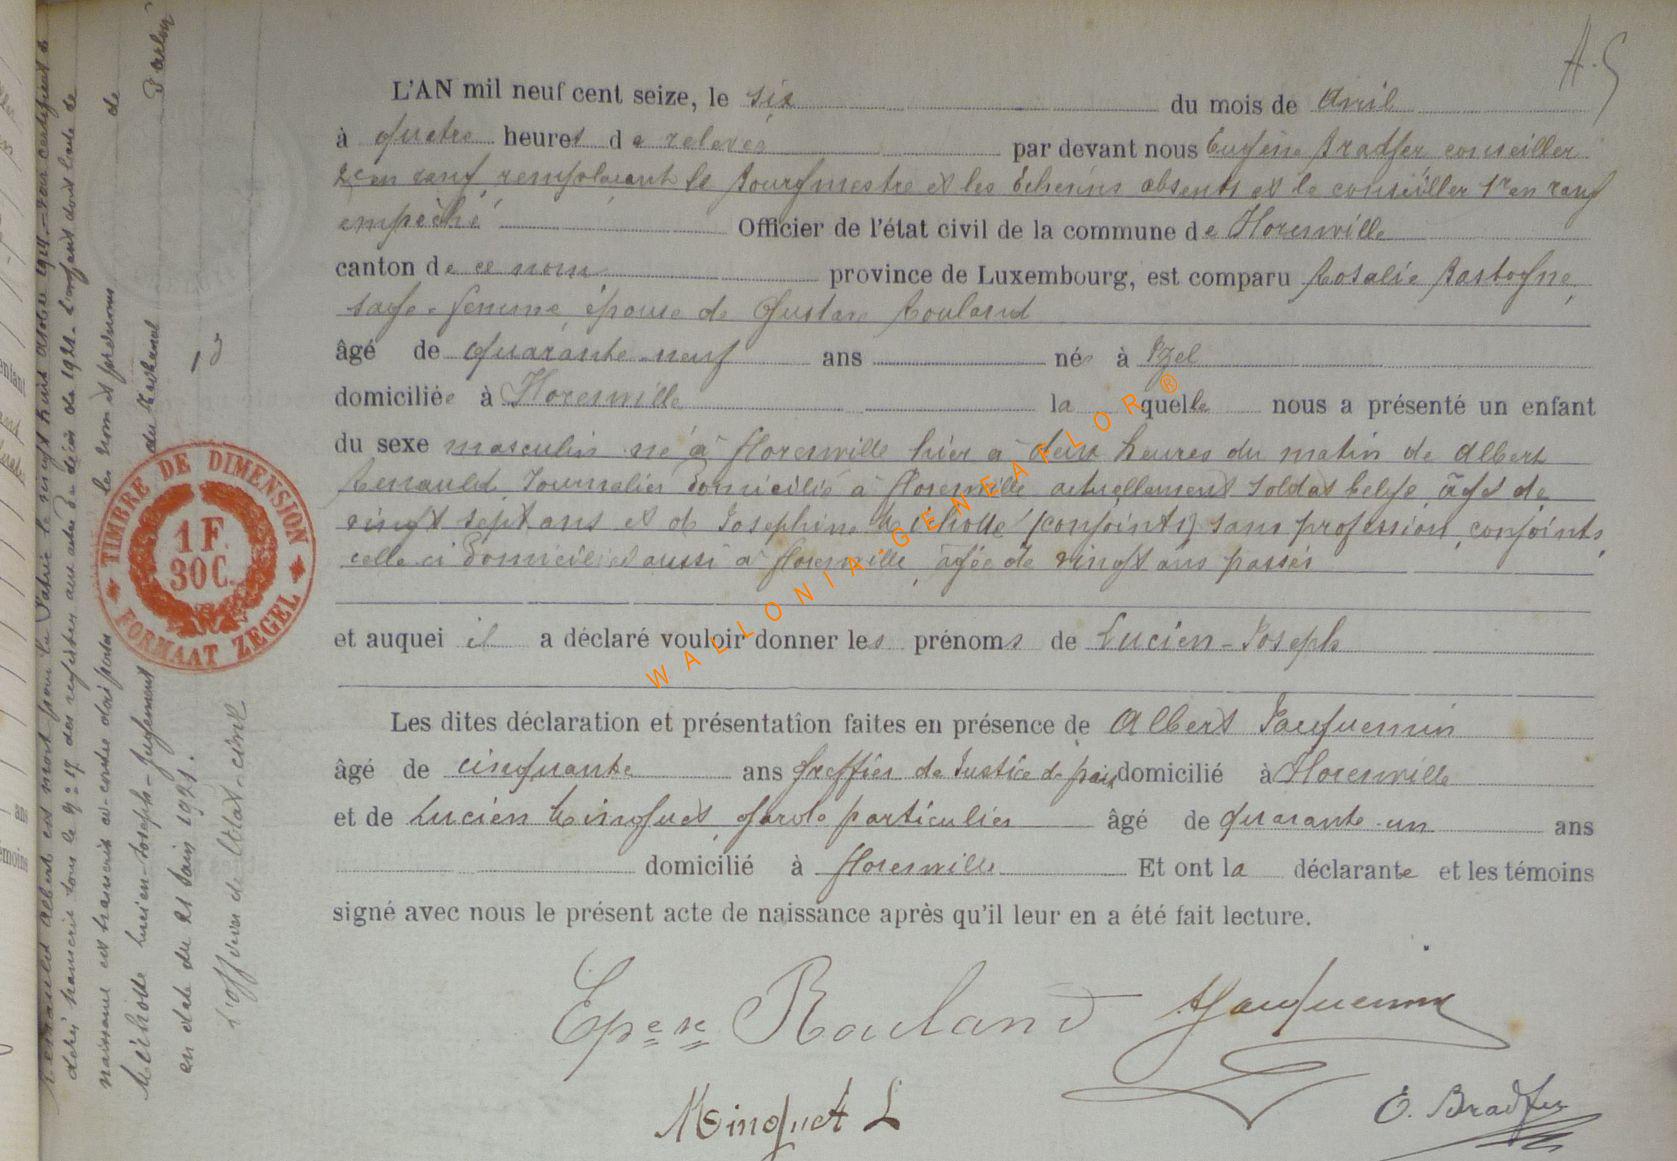 A. S
L'AN mil neuf cent seize, le six du mois de Avril
à quatre heures de relevée par devant nous Eugène Bradfer conseiller
2e en rang remplaçant le Bourgmestre et les Echevins absents et le conseiller 1er en rang
empêché Officier de l'état civil de la commune de Florenville
canton de ce nom province de Luxembourg, est comparu Rosalie Bastogne,
sage-femme, épouse de Gustave Rouland
âgé de quarante-neuf ans née à Izel
domiciliée à Florenville laquelle nous a présenté un enfant
du sexe masculin né à Florenville hier à deux heures du matin de Albert
Renauld, Journalier domicilié à Florenville actuellement soldat belge âgé de
vingt sept ans et de Josephine (conjoints) sans profession, conjoints,
celle ci domiciliée aussi à Florenville, âgée de vingt ans passés
et auquel il a déclaré vouloir donner les prénoms de Lucien-Joseph
Les dites déclaration et présentation faites en présence de Albert Jacquemin
âgé de cinquante ans greffier de Justice de paix domicilié à Florenville
et de Lucien Meinguet, garde particulier âgé de quarante-un ans
domicilié à Florenville Et ont la déclarante et les témoins
signé avec nous le présent acte de naissance après qu'il leur en a été fait lecture.
Epse Rouland
A Jacquemin
Meinguet L
E. Bradfer
TIMBRE DE DIMENSION
1 F.
30 C.
FORMAAT ZEGEL
WALLONIA-GENEAFLOR®
Renauld Albert est mort pour la Patrie le vingt huit octobre 1914.
décès transcrit sous le n° 17 des registres aux actes de décès de 1921. L'enfant dont l'acte de
naissance est transcrit ci-contre les nom et prénoms de
Lucien-Joseph - Jugement du Tribunal d'Arlon
en date du 21 1921.
L'officier de l'état-civil